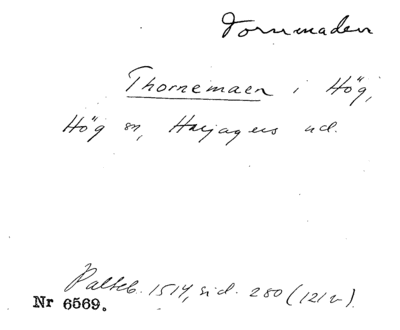 Tornmaden
Thornemaen i Hög,
Hög sn, Harjagers hd.
Palteb. 1514, sid. 280 (121v).
Nr 6569.